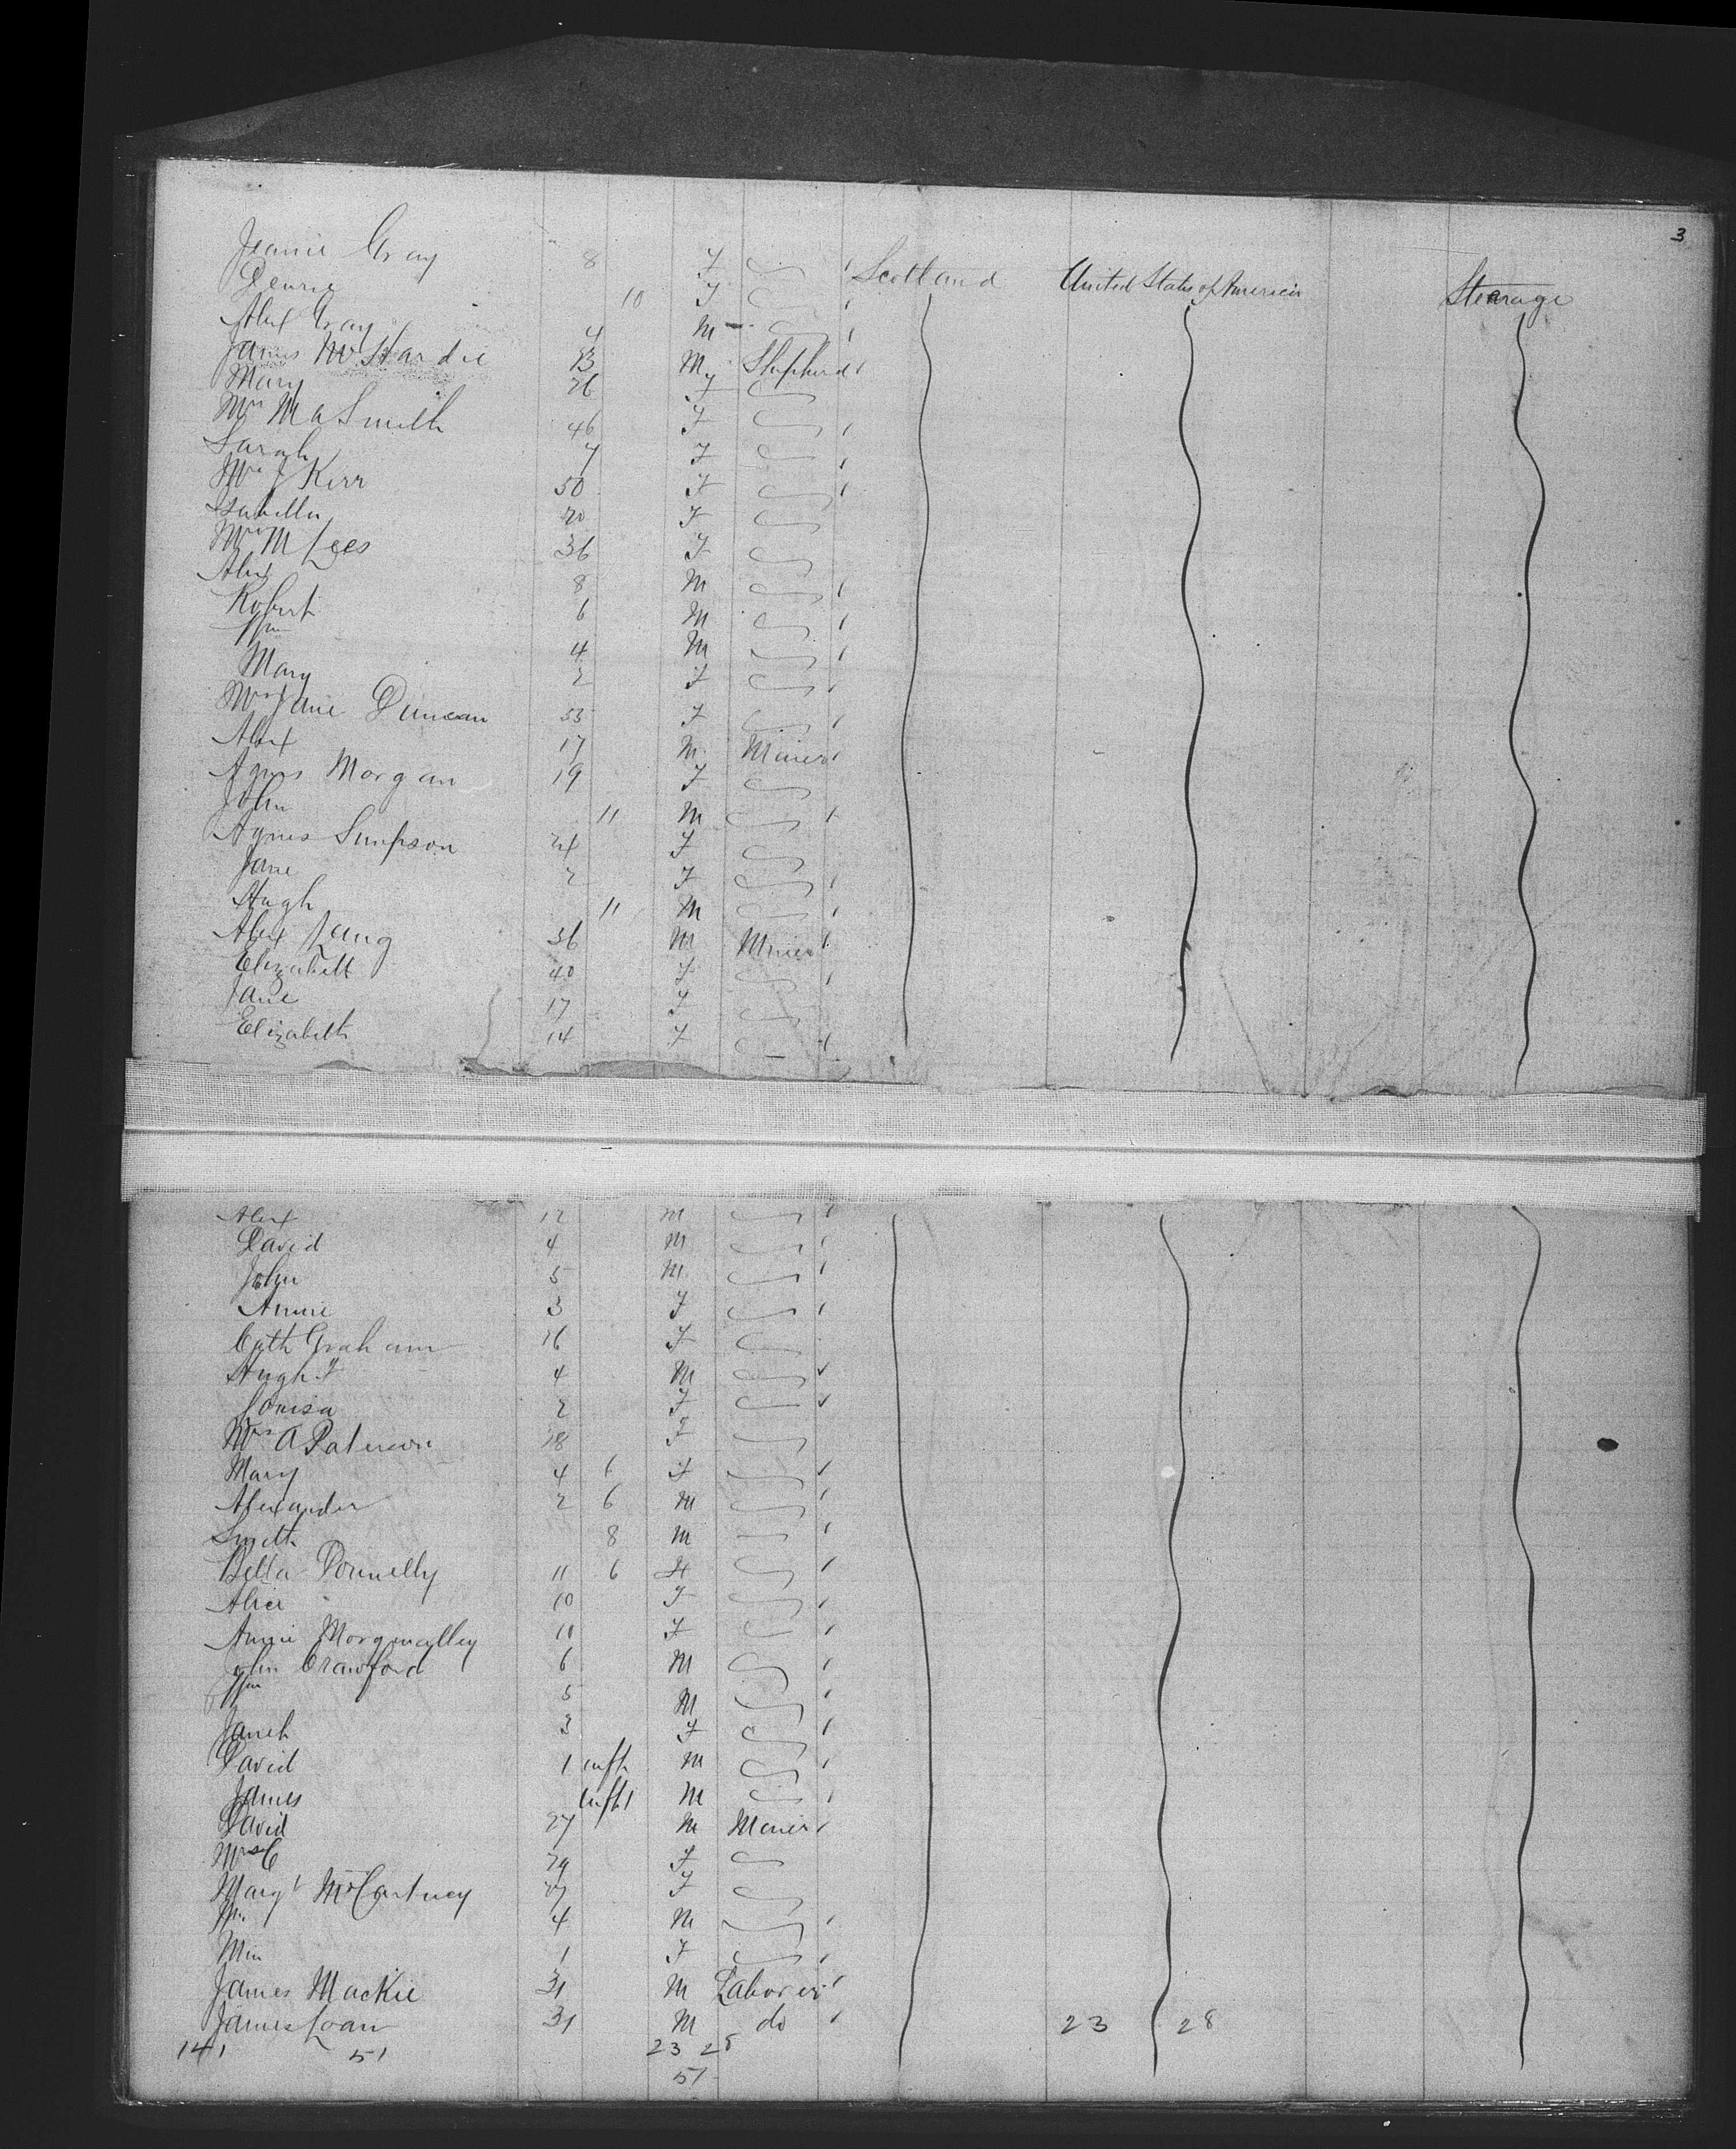 3
Jeanie Gray 8 F Scotland United States of America Steerage
10 F
Alex Gray 4 M
James McHardie M Shepherd
Mary 26 F
Mrs M A Smith 46 F
Sarah 7 F
Mrs J Kerr 50 F
Isabella 20 F
Mrs M Lees 36 F
Alex 8 M
Robert 6 M
Wm 4 M
Mary 2 F
Mrs Jane Duncan 55 F
Alex 17 M Miner
Agnes Morgan 19 F
John 11 M
Agnes Simpson 24 F
Jane 2 F
Hugh 11 M
Alex Lang 36 M Miner
Elizabeth 40 F
Jane 17 F
Elizabeth 14 F
Alex 12 M
David 4 M
John 5 M
Annie 3 F
Cath Graham 26 F
Hugh 4 M
Louisa 2 F
Mrs A Paterson 28 F
Mary 4 6 F
Alexander 2 6 M
Smith 8 M
Bella Donnelly 11 6 F
Alice 10 F
Annie 10 F
John Crawford 6 M
Wm 5 M
Janet 3 F
David 1 inft M
James inft M
David 27 M Miner
Mrs C 29 F
Margt McCartney 27 F
Wm 4 M
Min 1 F
James Mackie 31 M Laborer
James Loan 31 M do 23 28
141 51 23 28
51